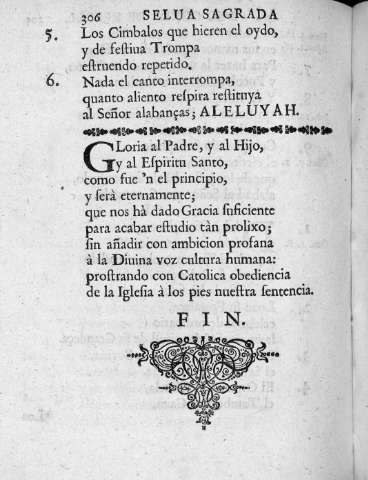 306 SELUA SAGRADA
5. Los Cimbalos que hieren el oydo,
y de feſtiua Trompa
eſtruendo repetido.
6. Nada el canto interrompa,
quanto aliento reſpira reſtituya
al Señor alabanças; ALELUYAH.
GLoria al Padre, y al Hijo,
y al Eſpiritu Santo,
como fue 'n el principio,
y ſerà eternamente;
que nos hà dado Gracia ſuficiente
para acabar eſtudio tàn prolixo;
ſin añadir con ambicion profana
à la Diuina voz cultura humana:
proſtrando con Catolica obediencia
de la Igleſia à los pies nueſtra ſentencia.
FIN.